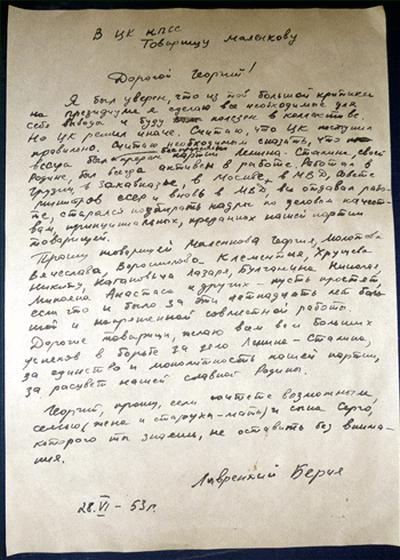 В ЦК КПСС
Товарищу Маленкову
Дорогой Георгий!
Я был уверен, что из той большой критики
на президиуме я сделаю все необходимые для
себя выводы и буду полезен в коллективе.
Но ЦК решил иначе. Считаю, что ЦК поступил
правильно. Считаю необходимым сказать, что
всегда был предан партии Ленина-Сталина, своей
Родине, был всегда активен в работе. Работал в
Грузии, в Закавказье, в Москве, в МВД, Совете
министров СССР и вновь в МВД, все отдавал рабо-
те, старался подбирать кадры по деловым качест-
вам, принципиальных, преданных нашей партии
товарищей.
Прошу товарищей Маленкова Георгия, Молотова
Вячеслава, Ворошилова Клементия, Хрущева
Никиту, Кагановича Лазаря, Булганина Николая,
Микояна Анастаса и других - пусть простят,
если что и было за эти пятнадцать лет боль-
шой и напряженной совместной работы.
Дорогие товарищи, желаю вам всем больших
успехов в борьбе за дело Ленина-Сталина,
за единство и монолитность нашей партии,
за расцвет нашей славной Родины.
Георгий, прошу, если сочтете возможным,
семью (жена и старуха-мать) и сына Серго,
которого ты знаешь, не оставить без внима-
ния.
Лаврентий Берия
28.VI - 53г.